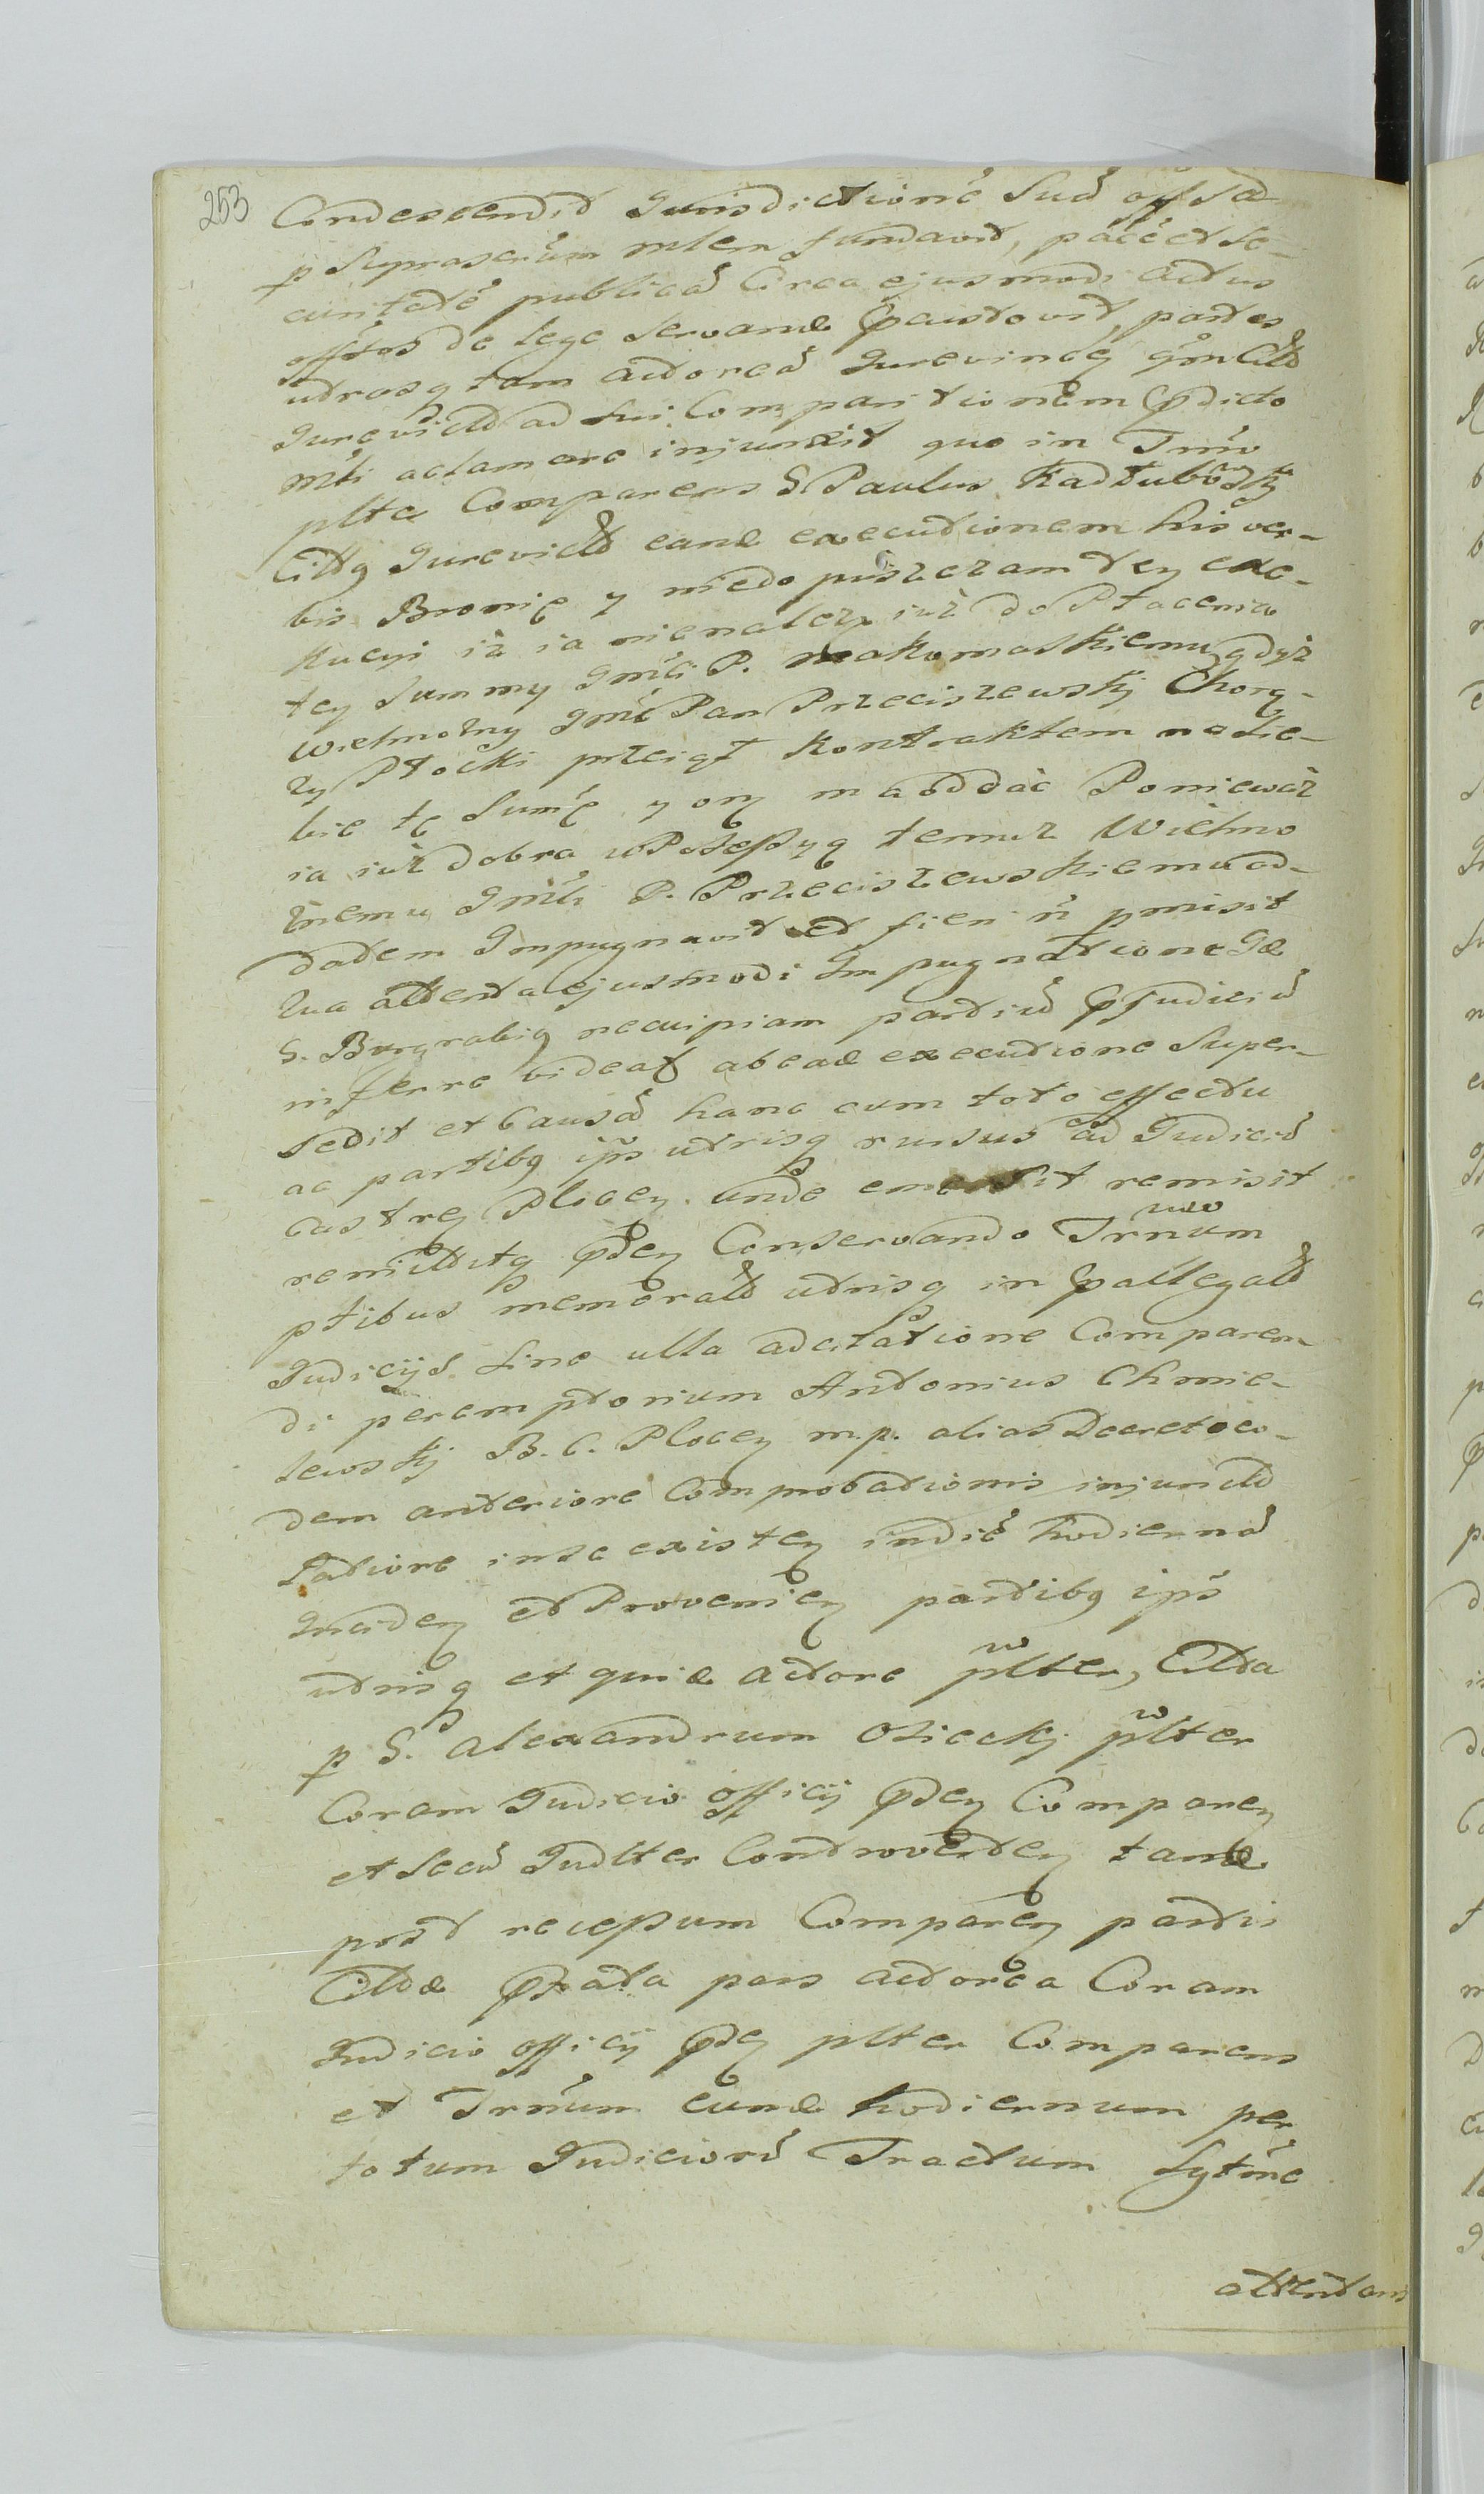 253
Condescendit Jurisdictionē Suā offsæ
p Supraserūm mlem fundavit, pācē et Se-
curitatē publicā Circa ejusmodi actus
offsos de lege servandæ Pcustodvit, partes
utrasq tam actoreā Jurevincē qm Cittā
Jurevictā ad sui Comparitionem Pdicto
Mti aclamare injunxit quo in Trno
plte Comparens G. Paulus Kadłubowskj
Cittq Jurevictq eandæ executionem his ver-
bis Bronię y niedopuszczam tey exe-
kucyi iż ia nienależę iuż do Płacenia
tey Summy Jmći P. Makomaskiemu gdyż
wielmożny Jmć Pan Przeciszewskij Chorą-
ży Płocki prziiął kontraktem na Sie-
bie tę Sumę y ony ma oddać Ponieważ
ia iuż dobra w Possessyą temuż Wielmo
żnemu Jmći P. Przeciszewskiemu od-
dałem Impugnavit et fieri n pmisit
Qua attenta ejusmodi Impugnatione Gæ
G. Burgrabiq necuipiam partiū Pjudiciū
inferre videat abeadæ executione Super-
sedit et Causā hanc cum toto effectu
ac partibq ipis utrisq rursus ad Judiciū
castren Plocen unde emersit remisit
remittitq Pden Conservando Trnum
ptibus memoratis utrisq in Pallegatis
Judicijs sine ulla adcitatione Comparen-
di peremptorium Antonius Chmie-
lewskj B. C. Plocen m.p. alias Decreto eo-
dem anteriore Comprobationis injunctā
Ratione inse existen indiē hodiernā
Inciden et Provenien partibq ipis
utrisq et quidæ actore plter, Citta
p G. Alexandrum Osieckj plter
Coram Judicio officij Pden Comparen
et Secū Judlter Controverten tandæ
post recessum Comparen partis
Cittæ Pfata pars actorea Coram
Judicio officij Pden plter Comparens
et Trnum eundæ hodiernum per
totum Judiciorū Tractum Lgtime
attentans